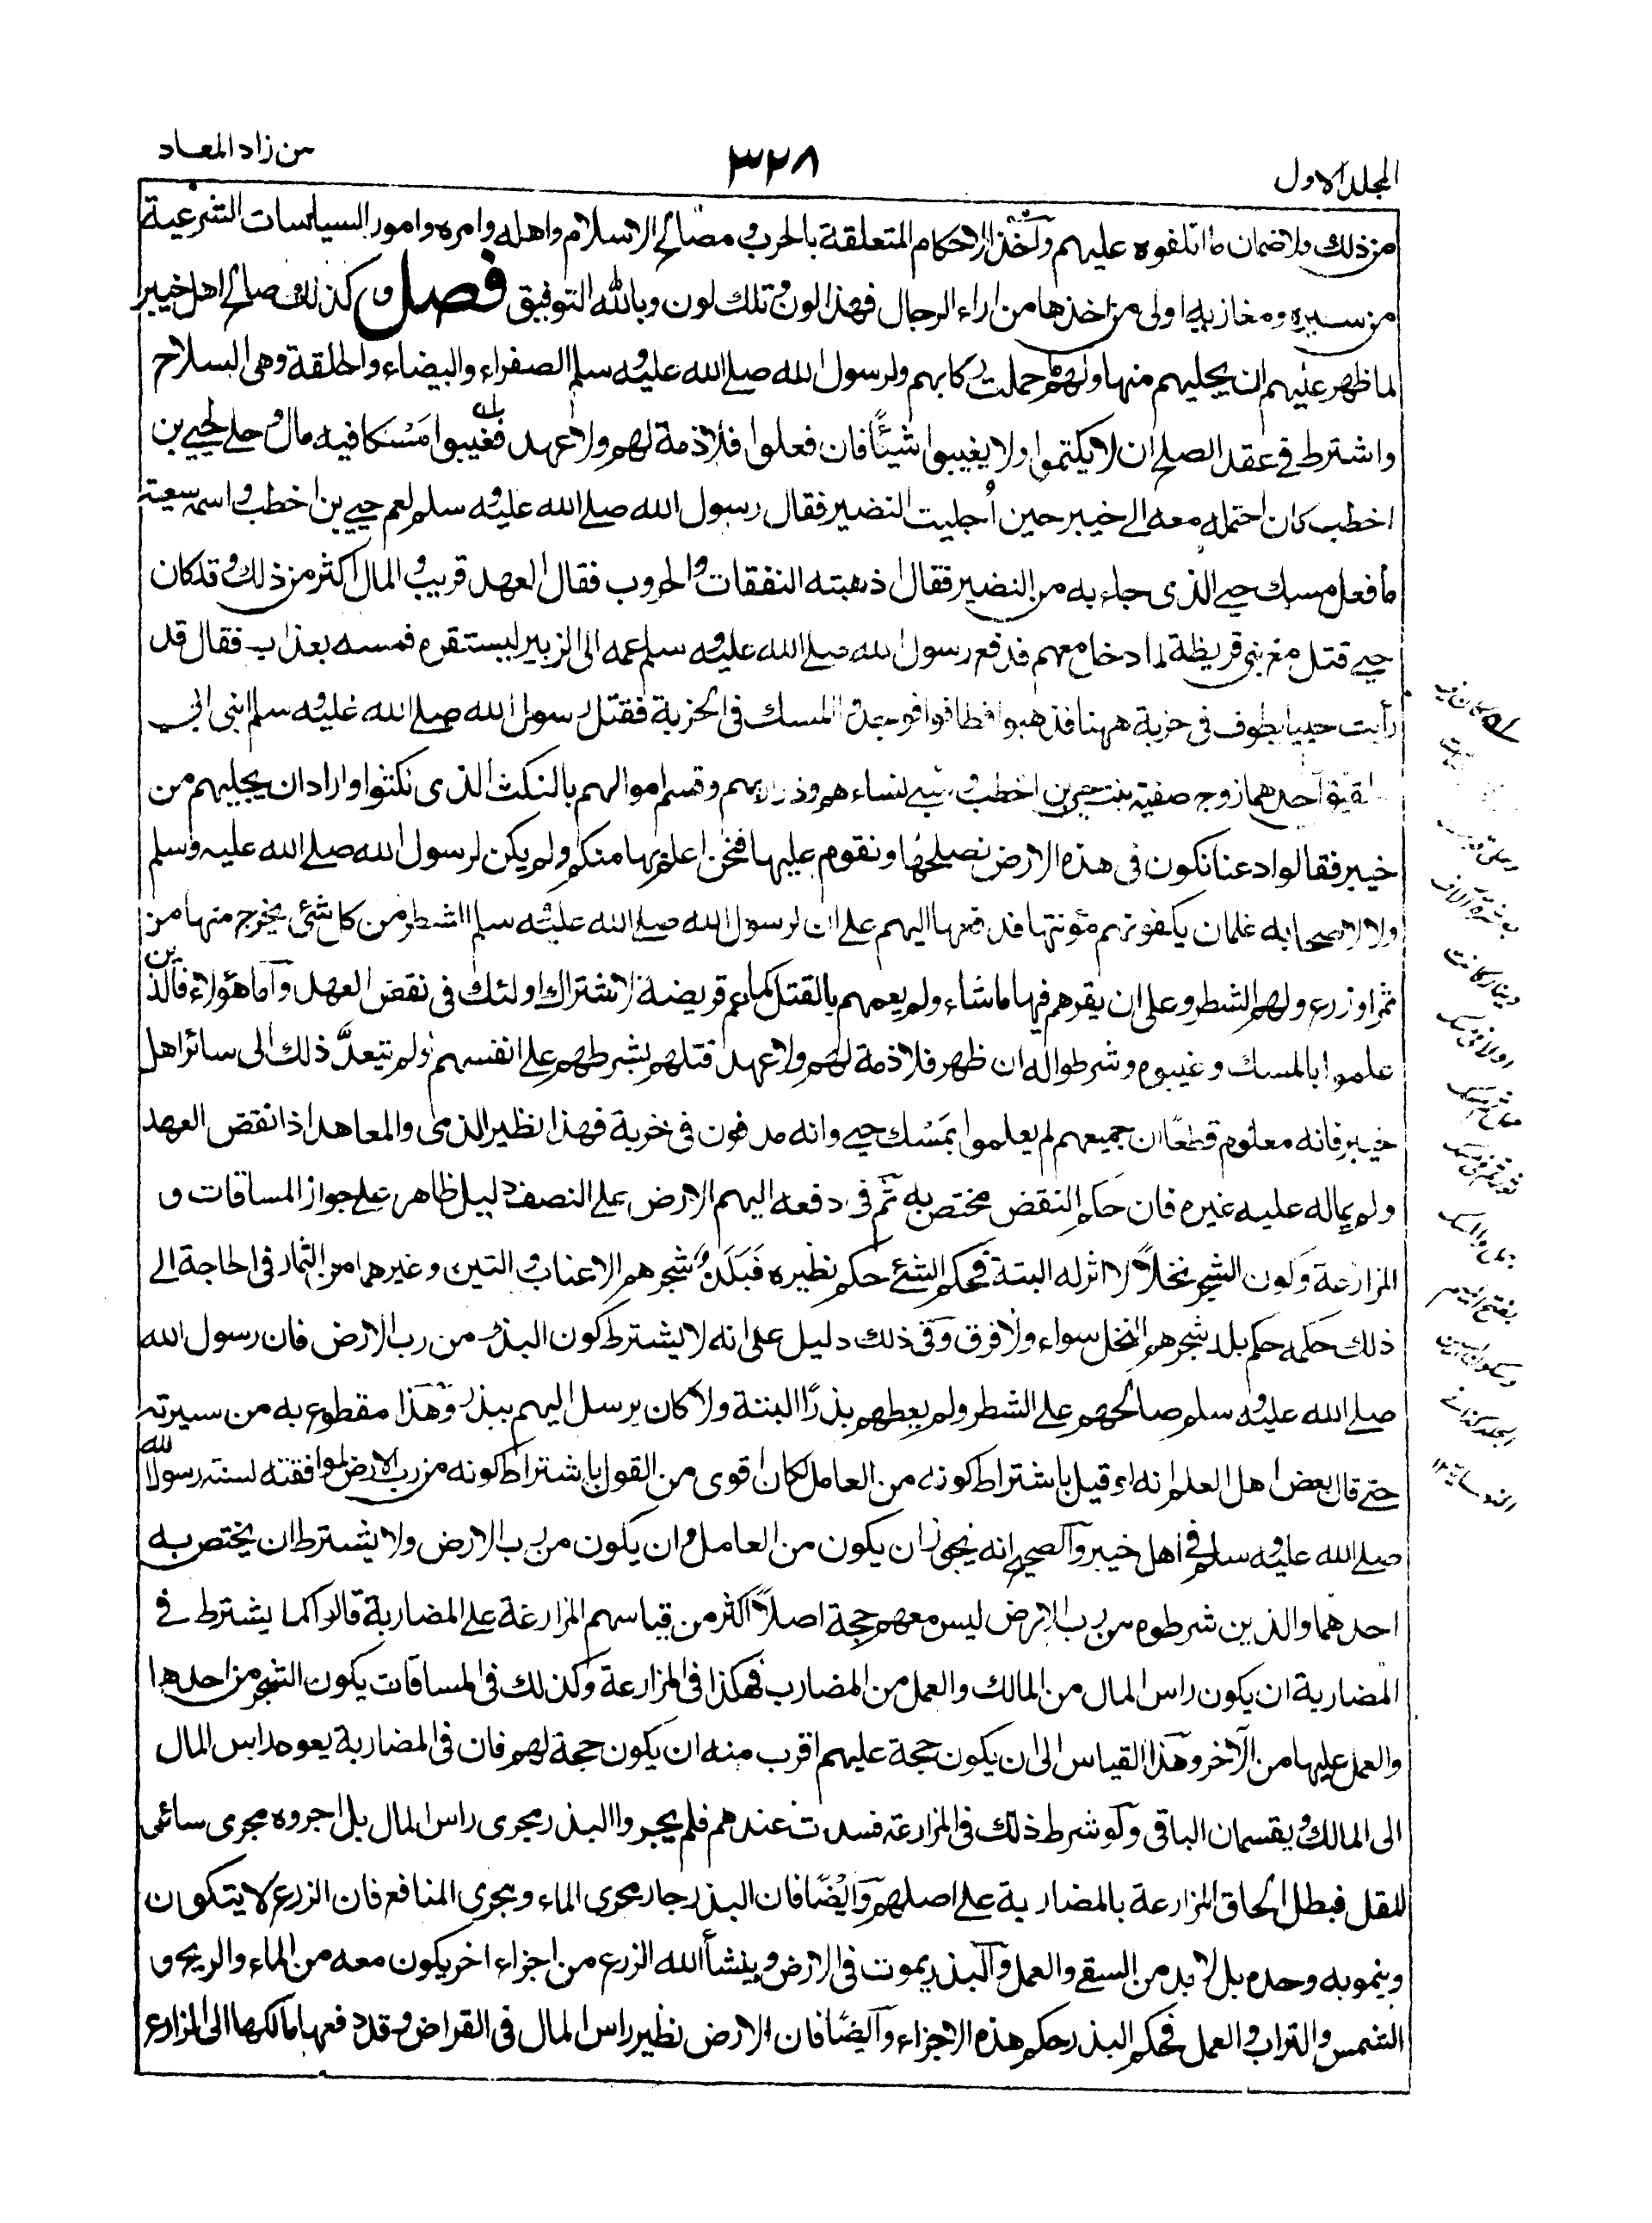 المجلد الاول
٣٢٨
من زاد المعاد
من ذلك ولا ضمان ما اتلفوه عليهم وآخذ الاحكام المتعلقة بالحرب ومصالح الاسلام واهله وامره وامور السياسات الشرعية
من سيره ومغازيه اولى من اخذها من اراء الرجال فهذا لون وتلك لون وبالله التوفيق فصل وكذلك صالح اهل خيبر
لما ظهر عليهم ان يجليهم منها ولهم ما حملت ركابهم ولرسول الله صلى الله عليه وسلم الصفراء والبيضاء والحلقة وهي السلاح
واشترط في عقد الصلح ان لا يكتموا ولا يغيبوا شيئًا فان فعلوا فلا ذمة لهم ولا عهد فغيبوا مَسْكا فيه مال وحلي لحيي بن
اخطب كان احتمله معه الى خيبر حين اُجليت النضير فقال رسول الله صلى الله عليه وسلم لعم حيي بن اخطب واسمه سعية
ما فعل مسك حيي الذى جاء به من النضير فقال اذهبته النفقات والحروب فقال العهد قريب والمال اكثر من ذلك وقد كان
حيي قتل مع بني قريظة لما دخل معهم فدفع رسول الله صلى الله عليه وسلم عمه الى الزبير ليستقره فمسه بعذاب فقال قد
رأيت حييا يطوف فى خربة ههنا فذهبوا فطافوا فوجدوا المسك فى الخربة فقتل رسول الله صلى الله عليه وسلم ابنى ابي
الحقيق احدهما زوج صفية بنت حيي بن اخطب وسبي نساءهم وذراريهم وقسم اموالهم بالنكث الذى نكثوا واراد ان يجليهم من
خيبر فقالوا دعنا نكون فى هذه الارض نصلحها ونقوم عليها فنحن اعلم بها منكم ولم يكن لرسول الله صلى الله عليه وسلم
ولا لاصحابه غلمان يكفونهم مؤنتها فدفعها اليهم على ان لرسول الله صلى الله عليه وسلم الشطر من كل شئ يخرج منها من
ثمر او زرع ولهم الشطر وعلى ان يقرهم فيها ما شاء ولم يعمهم بالقتل كما عم قريضة لاشتراك اولئك فى نقض العهد وآما هؤلاء فالذين
علموا بالمسك وغيبوه وشرطوا له ان ظهر فلا ذمة لهم ولا عهد قتلهم بشرطهم على انفسهم ولم يتعدَّ ذلك الى سائر اهل
خيبر فانه معلوم قطعًا ان جميعهم لم يعلموا بمَسْك حيي وانه مدفون فى خربة فهذا نظير الذمى والمعاهد اذا نقض العهد
ولم يماله عليه غيره فان حكم النقض مختص به ثم في دفعه اليهم الارض على النصف دليل ظاهر على جواز المساقات و
المزارعة وكون الشجر نخلاً لا اثر له البتة فحكم الشئ حكم نظيره فبَلَدٌ شجرهم الاعناب والتين وغيرهما من الثمار فى الحاجة الى
ذلك حكمه حكم بلد شجرهم النخل سواء ولا فرق وَفى ذلك دليل على انه لا يشترط كون البذر من رب الارض فان رسول الله
صلى الله عليه وسلم صالحهم على الشطر ولم يعطهم بذرًا البتة ولا كان يرسل اليهم ببذر وَهَذا مقطوع به من سيرته
حتى قال بعض اهل العلم انه لو قيل باشتراط كونه من العامل لكان اقوى من القول باشتراط كونه من رب الارض لموافقته لسنة رسول الله
صلى الله عليه وسلم فى اهل خيبر وآلصحيح انه يجوز ان يكون من العامل وان يكون من رب الارض ولا يشترط ان يختص به
احدهما والذين شرطوه من رب الارض ليس معهم حجة اصلاً اكثر من قياسهم المزارعة على المضاربة قالوا كما يشترط في
المضاربة ان يكون راس المال من المالك والعمل من المضارب فهكذا فى المزارعة وكذلك فى المساقات يكون الشجر من احدهما
والعمل عليها من الآخر وهَذا القياس الى ان يكون حجة عليهم اقرب منه ان يكون حجة لهم فان فى المضاربة يعود راس المال
الى المالك ويقسمان الباقى وَلو شرط ذلك فى المزارعة فسدت عندهم فلم يجروا البذر مجرى راس المال بل اجروه مجرى سائر
البقل فبطل الحاق المزارعة بالمضاربة على اصلهم وَايْضًا فان البذر جار مجرى الماء ومجرى المنافع فان الزرع لا يتكون
وينمو به وحده بل لا بد من السقي والعمل وَالبذر يموت فى الارض وينشأ الله الزرع من اجزاء اخر يكون معه من الماء والريح و
الشمس والتراب والعمل فحكم البذر حكم هذه الاجزاء وَآيضًا فان الارض نظير راس المال فى القراض وقد دفعها مالكها الى المزارع